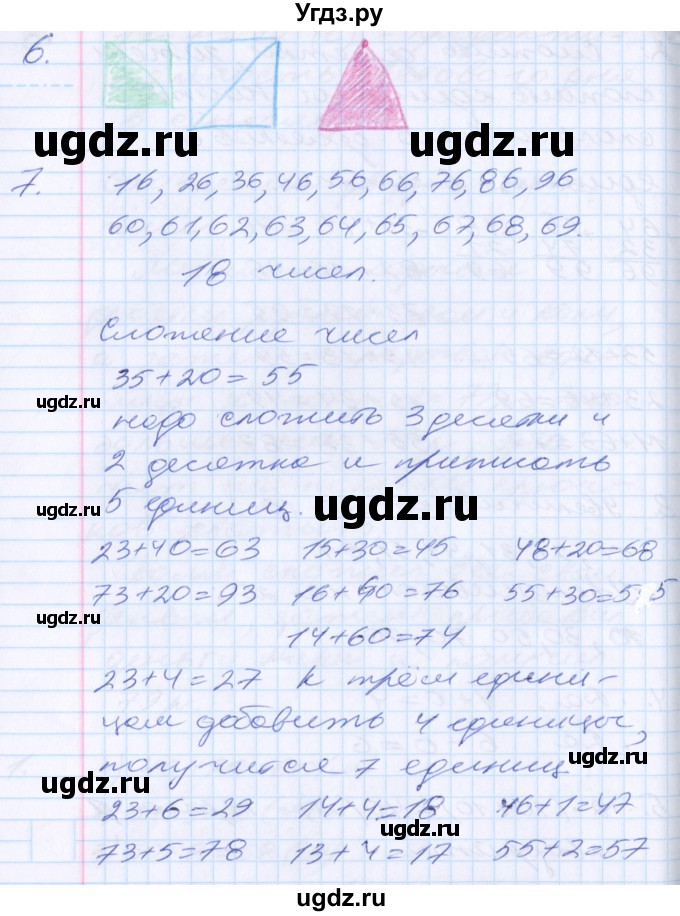 Угдз.ру
6.
ugdz.ru ugdz.ru
7. 16, 26, 36, 46, 56, 66, 76, 86, 96
60, 61, 62, 63, 64, 65, 67, 68, 69.
18 чисел.
Сложение чисел
35+20=55
ugdz.ru
надо сложить 3 десятки и
2 десятка и приписать
ugdz.ru ugdz.ru
5 единиц.
23+40=63 15+30=45 48+20=68
73+20=93 16+60=76 55+30=5
ugdz.ru
14+60=74
23+4=27 к трём едини-
цам добавить 4 единицы,
ugdz.ru
получится 7 единиц
ugdz.ru
23+6=29 14+4=18 46+1=47
ugdz.ru
73+5=78 13+4=17 55+2=57
ugdz.ru